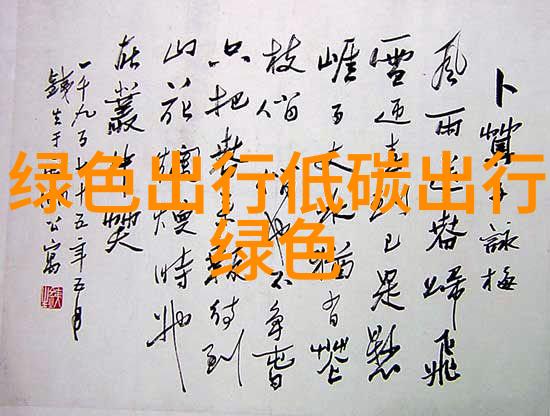 绿色出行低碳出行
绿色
卜算子 詠梅
風雨送春歸飛
雪迎春到已是懸
崖百丈冰猶有花
枝俏俏也不爭春
只把春來報待到
山花爛熳時她
在叢中笑
一千九百七十五年五月
公寓